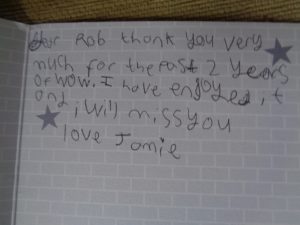 Rob thank you very
much for the past 2 years
of wow. I have enjoyed it
and i will miss you
love Jamie